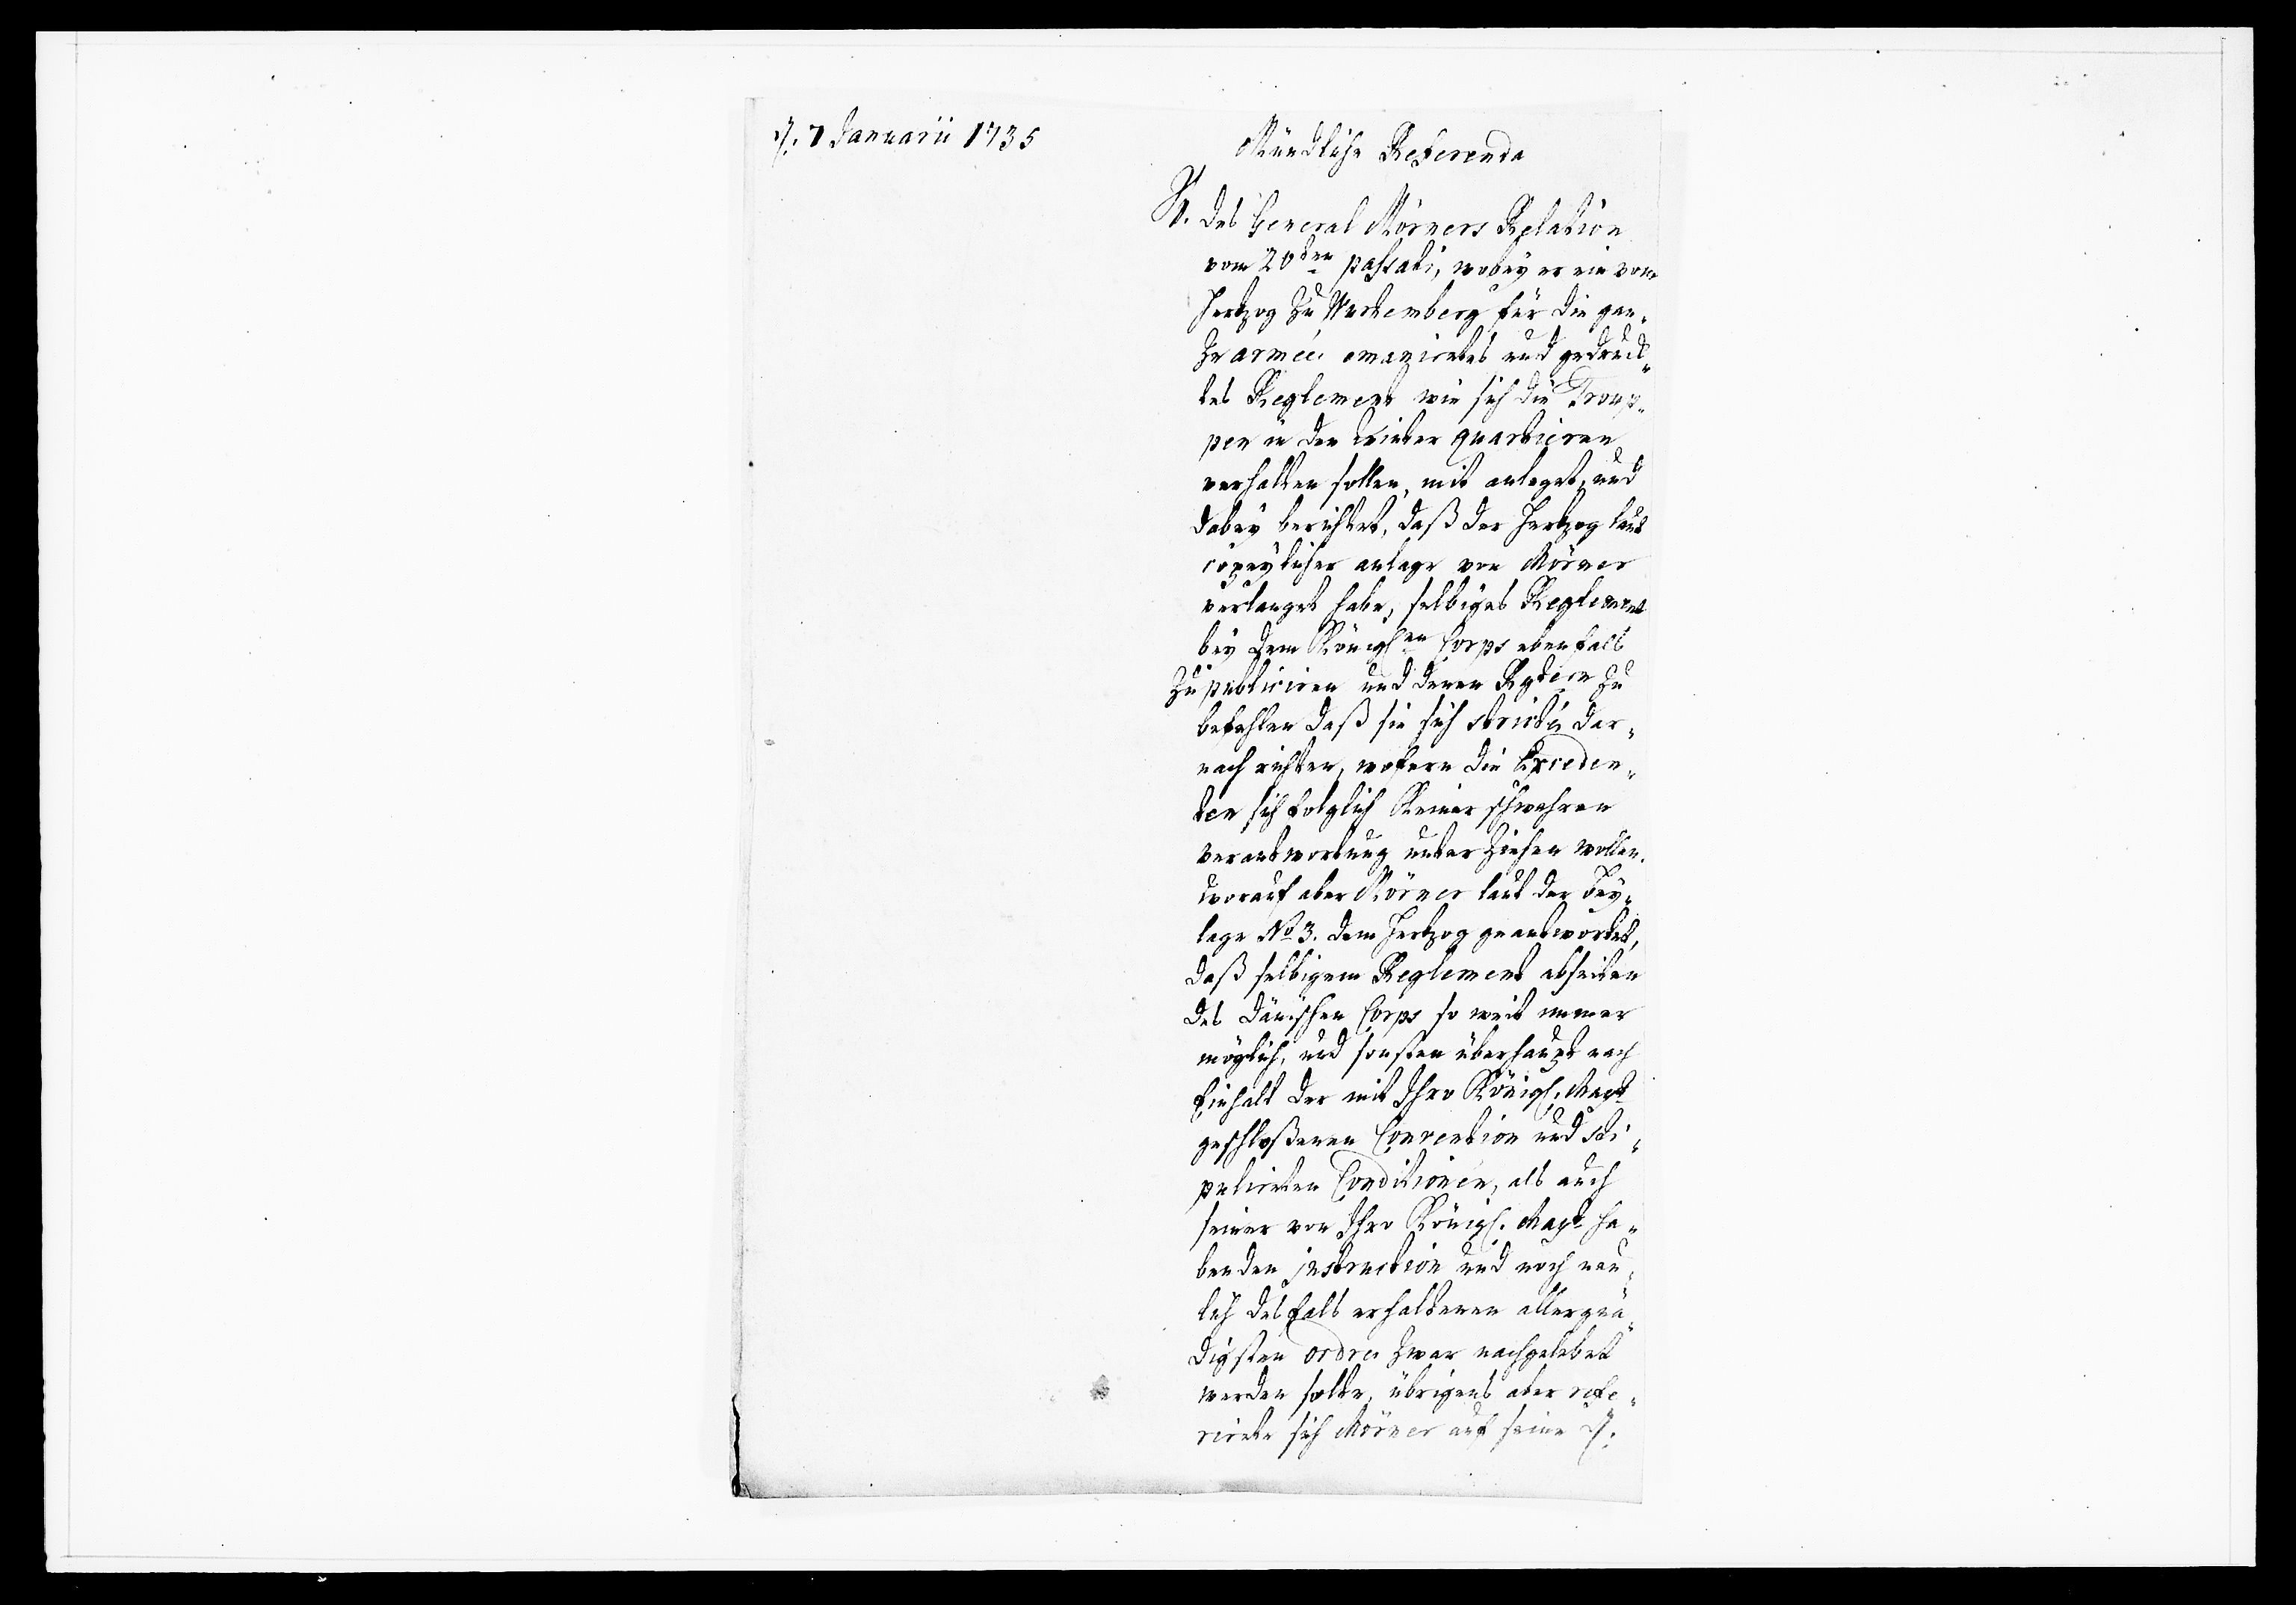 d. 7 Januarii 1735
Mündliche Referenda
Des General Mörners Relation
vom 20den passati, wobey er ein vom
Hertzog zu Wurtemberg für die gan-
tze armée emanirtes und gedruck-
tes Reglement wie sich die Troup-
pen in den winter quartieren
verhalten sollen, mit anleget, und
dabey berichtet, daß der Hertzog laut
copeylicher anlage von Mörner
verlanget habe, selbiges Reglement
bey dem Königlen Corps ebenfals
zu publiciren und denen Rgtern zu
befehlen daß sie sich stricté dar-
nach richten, wofern die Exceden-
ten sich folglich keiner schwehren
verantwortung unterziehen wollen.
worauf aber Mörner laut der Bey-
lage No 3. dem Hertzog geantwortet,
daß selbigem Reglement abseiten
des Dänischen Corps so weit immer
möglich, und sonsten überhaupt nach
Einhalt der mit Ihro Königl. Mayt
geschloßenen Convention und sti-
pulirten Conditionen, als auch
seiner von Ihro Königl. Mayt ha-
benden instruction und noch neu-
lich desfals erhaltenen allergnä-
digsten ordre zwar nachgelebet
werden solte, übrigens aber refe-
rirte sich Mörner auf seine d.